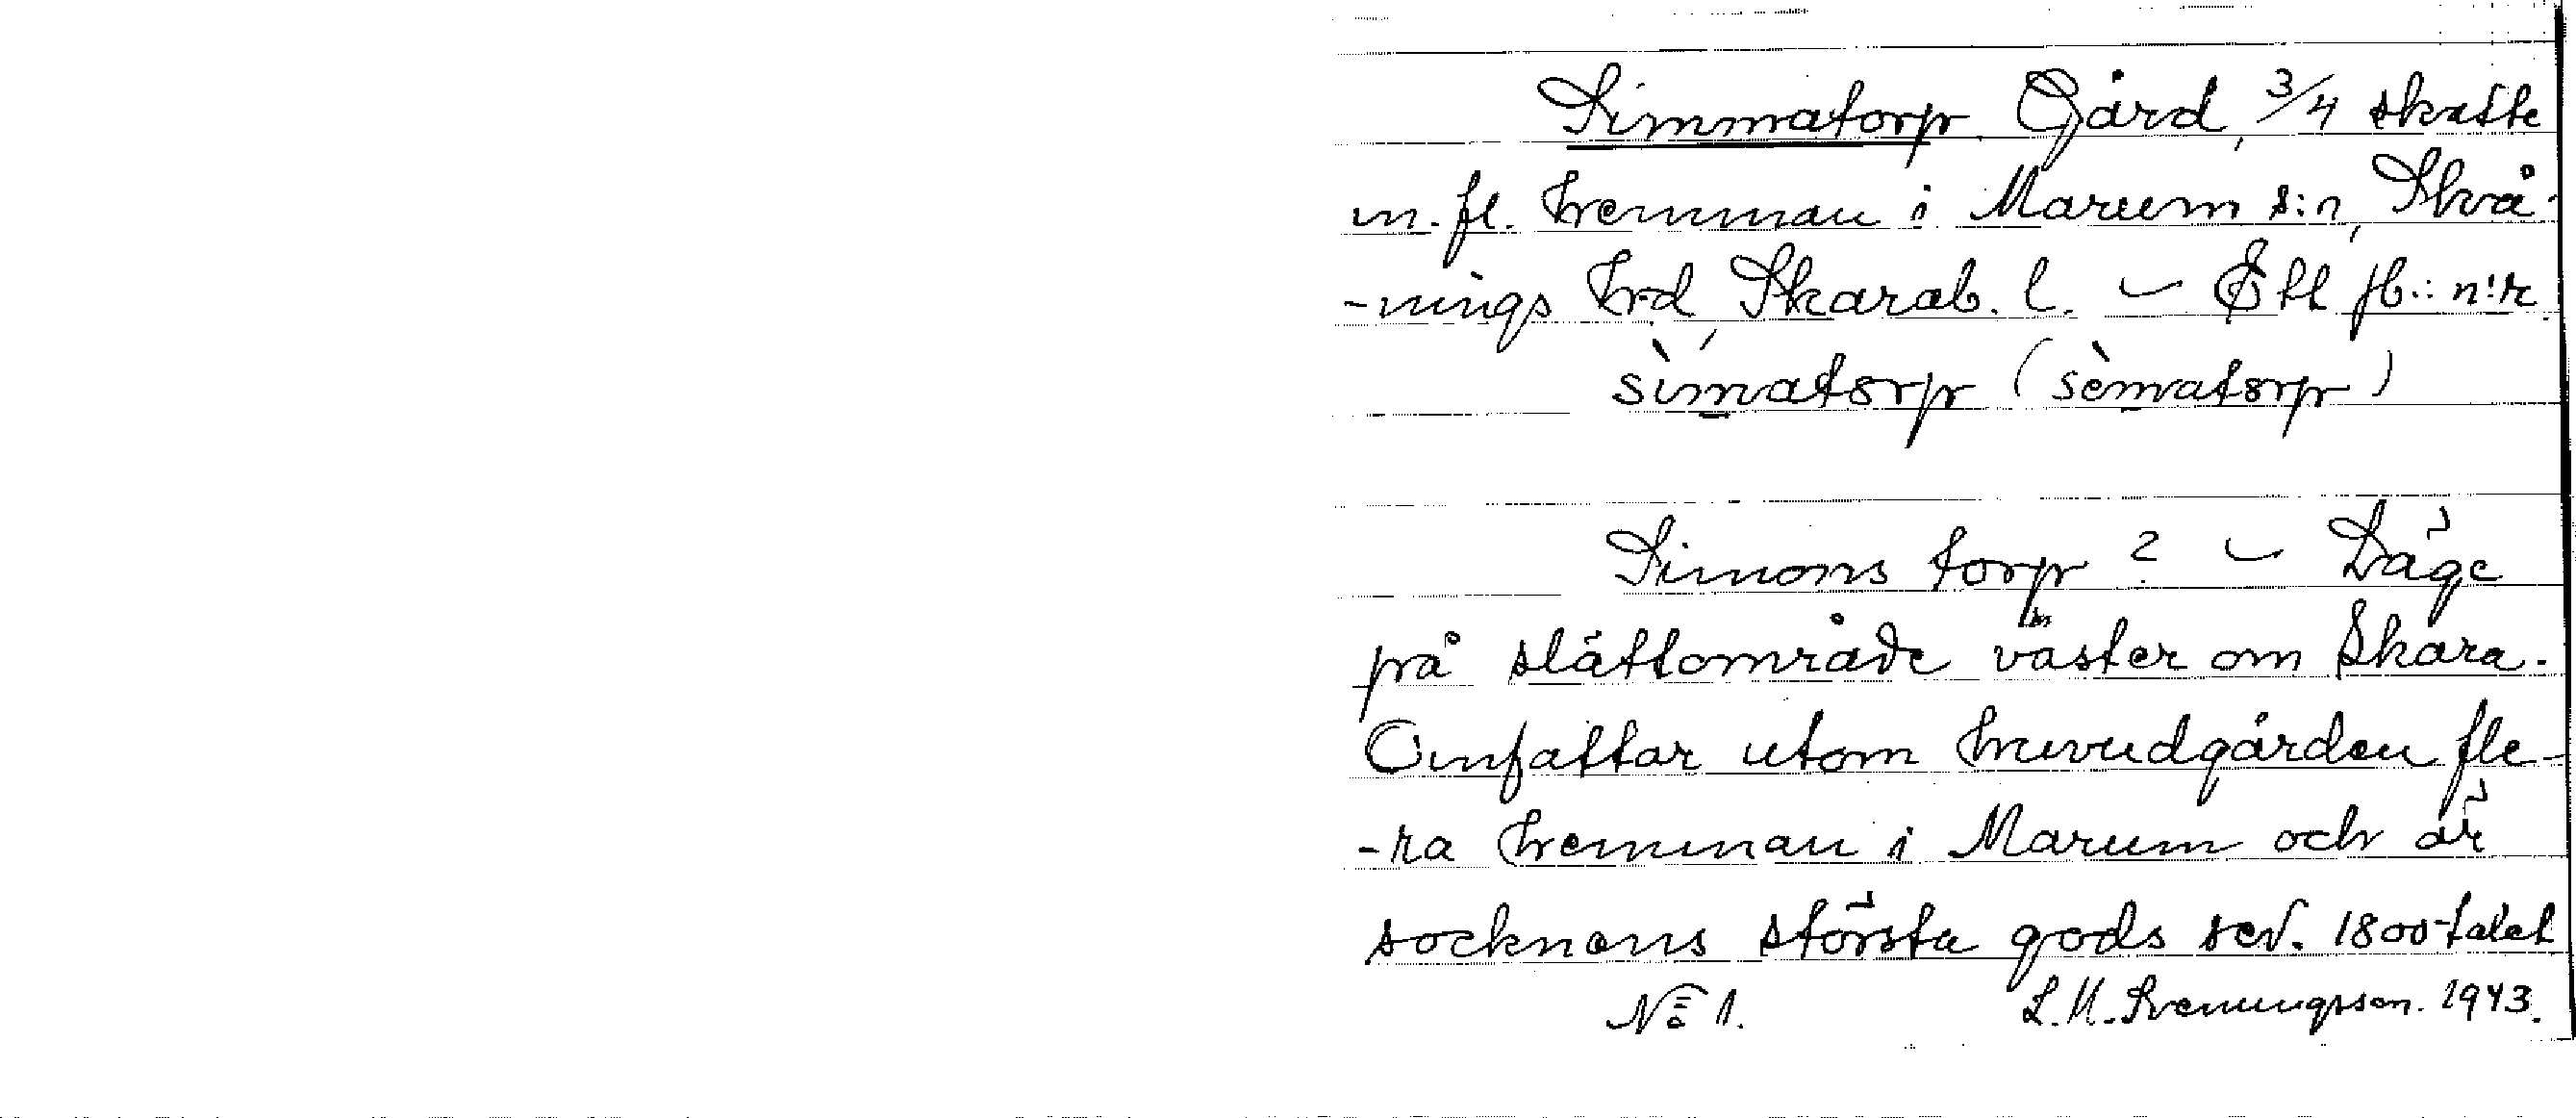 Simmatorp. Gård, 3/4 skatte
m. fl. hemman i Marum s:n, Skå-
-nings hd, Skarab. l. – Ett jb.: n:r
sìmatorp (sèmatorp)
Simons torp? – Läge
på slättområde väster om Skara.
Omfattar utom huvudgården fle-
-ra hemman i Marum och är
socknens största gods sed. 1800-talet
No 1. L. M. Svenungsson. 1943.